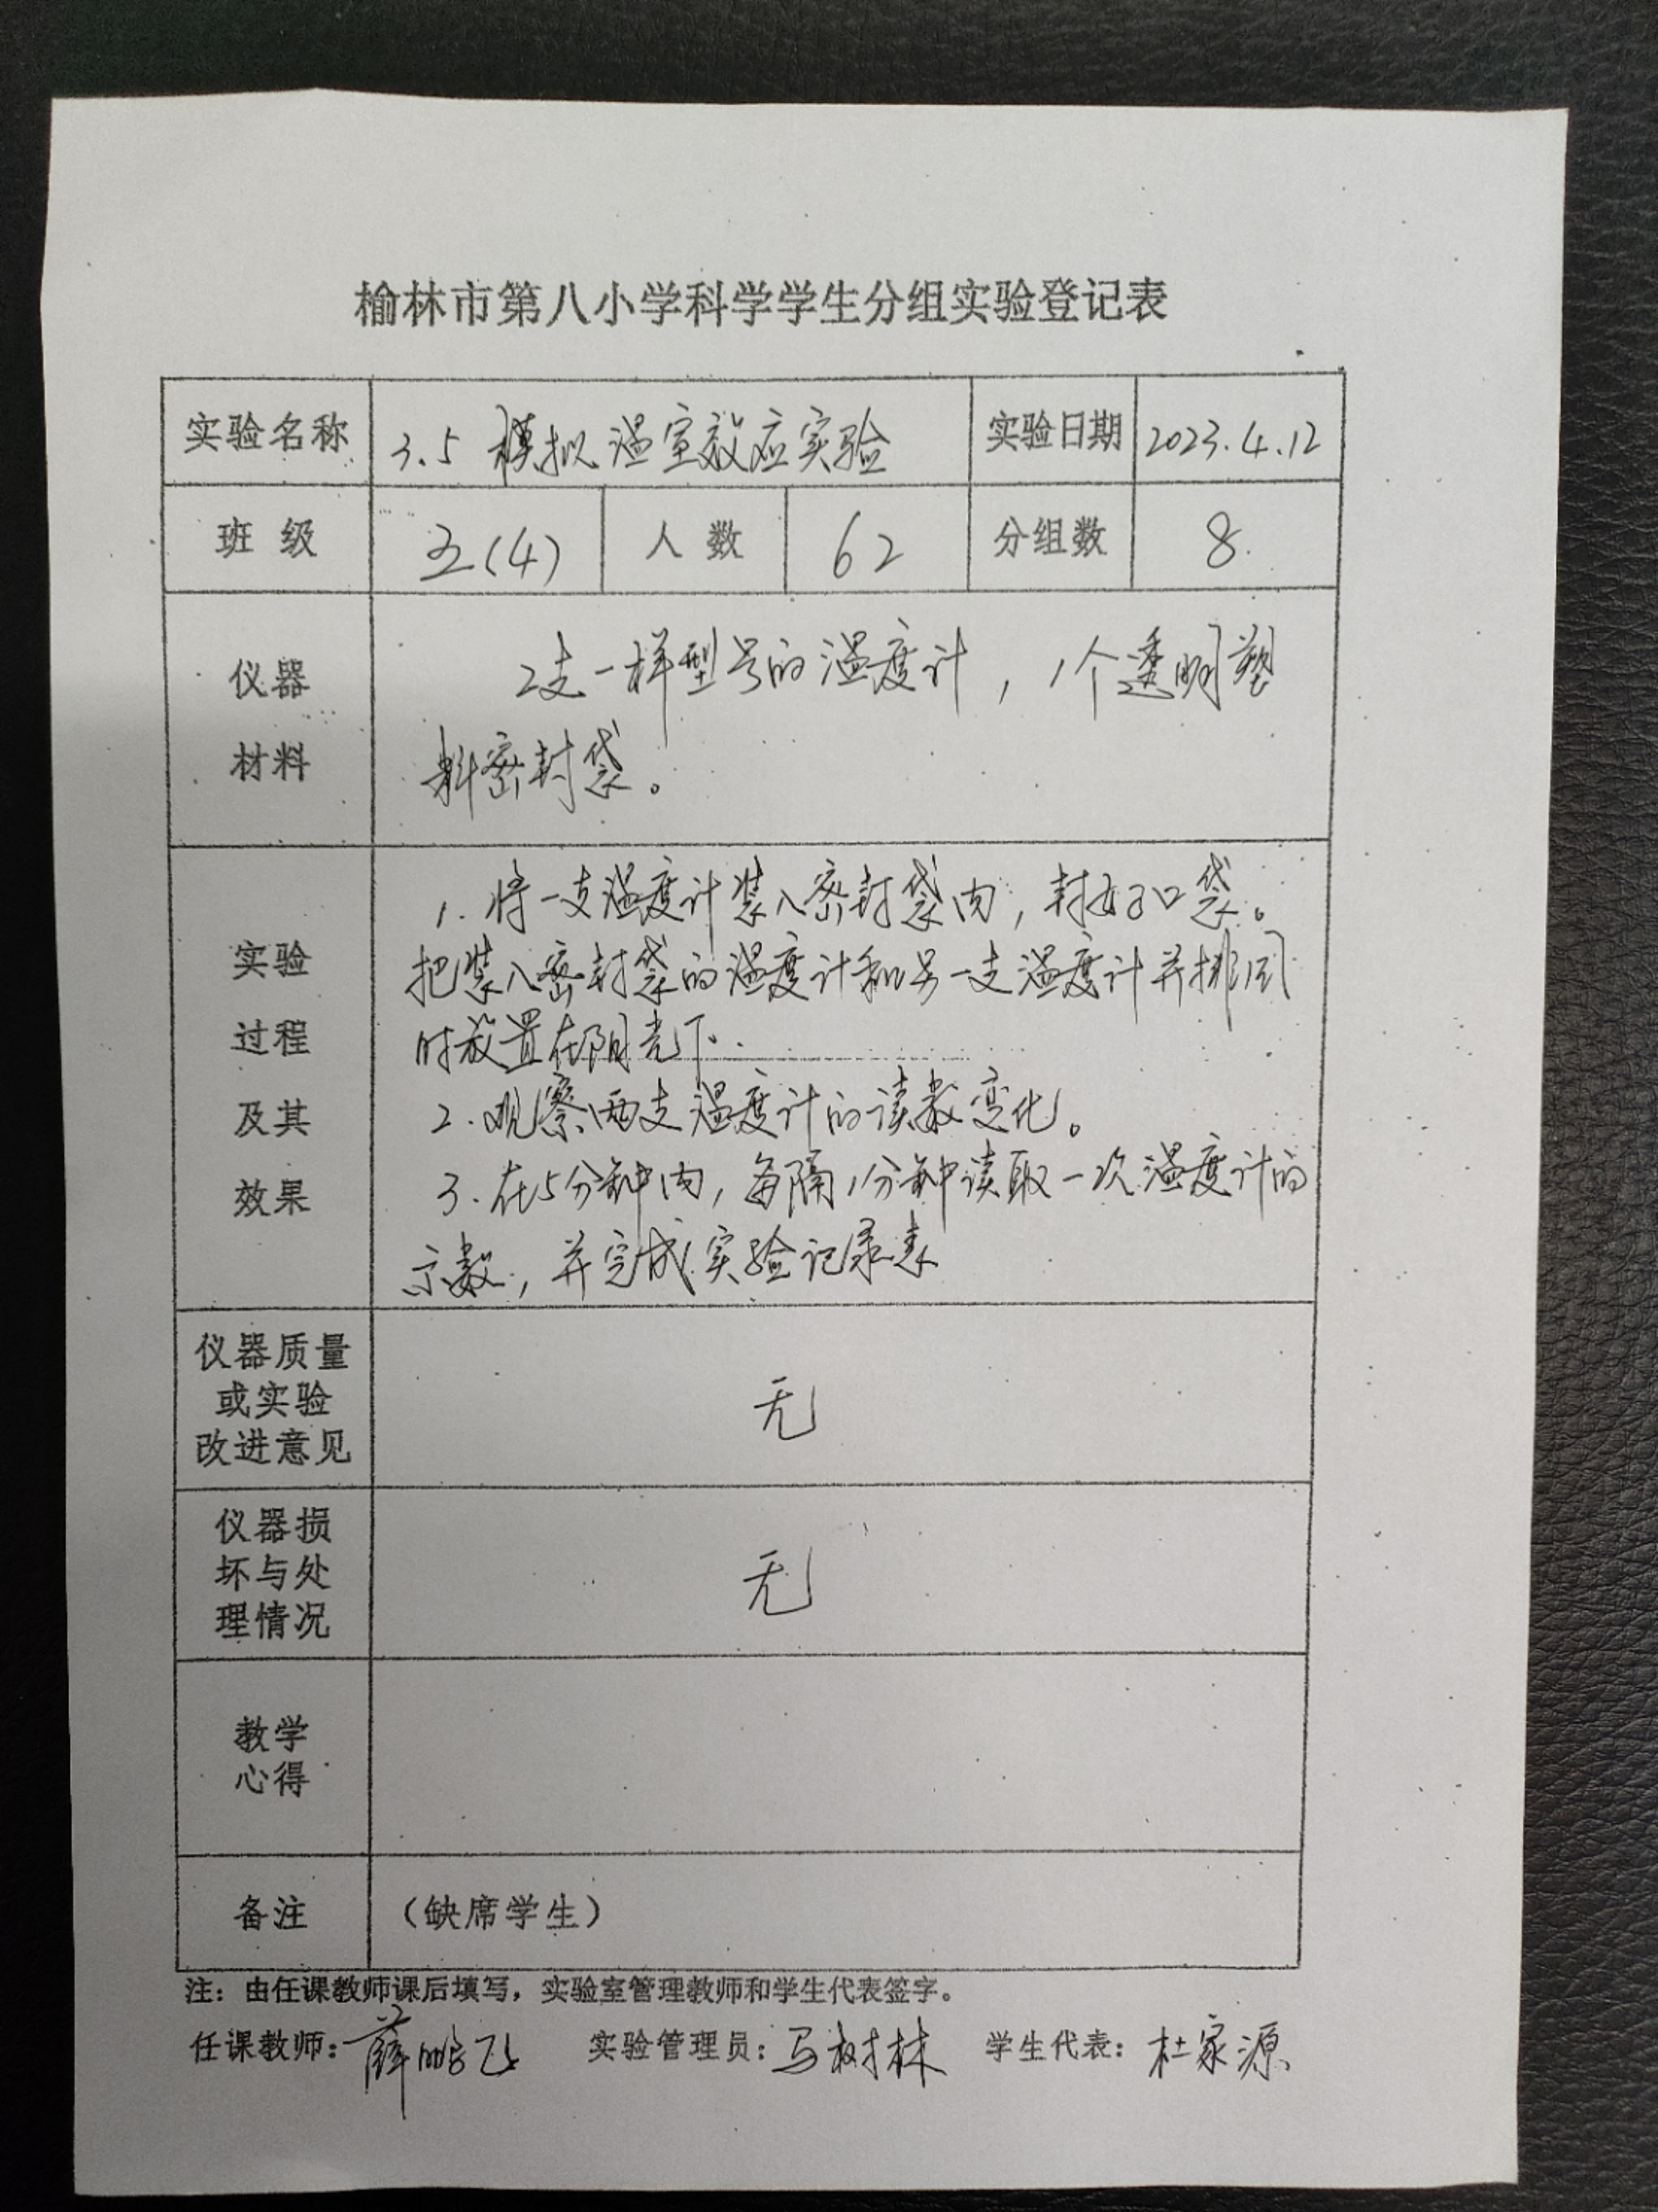 榆林市第八小学科学学生分组实验登记表
实验名称 3.5 模拟温室效应实验 实验日期 2023.4.12
班 级 五(4) 人 数 62 分组数 8
仪器
材料
2支一样型号的温度计，1个透明塑
料密封袋。
实验
过程
及其
效果
1. 将一支温度计装入密封袋内，封好口袋。
把装入密封袋的温度计和另一支温度计并排同
时放置在阳光下.
2. 观察两支温度计的读数变化。
3. 在5分钟内，每隔1分钟读取一次温度计的
示数，并完成实验记录表
仪器质量
或实验
改进意见
无
仪器损
坏与处
理情况
无
教学
心得
备注 （缺席学生）
注：由任课教师课后填写，实验室管理教师和学生代表签字。
任课教师：薛鹏飞 实验管理员：马树林 学生代表：杜家源